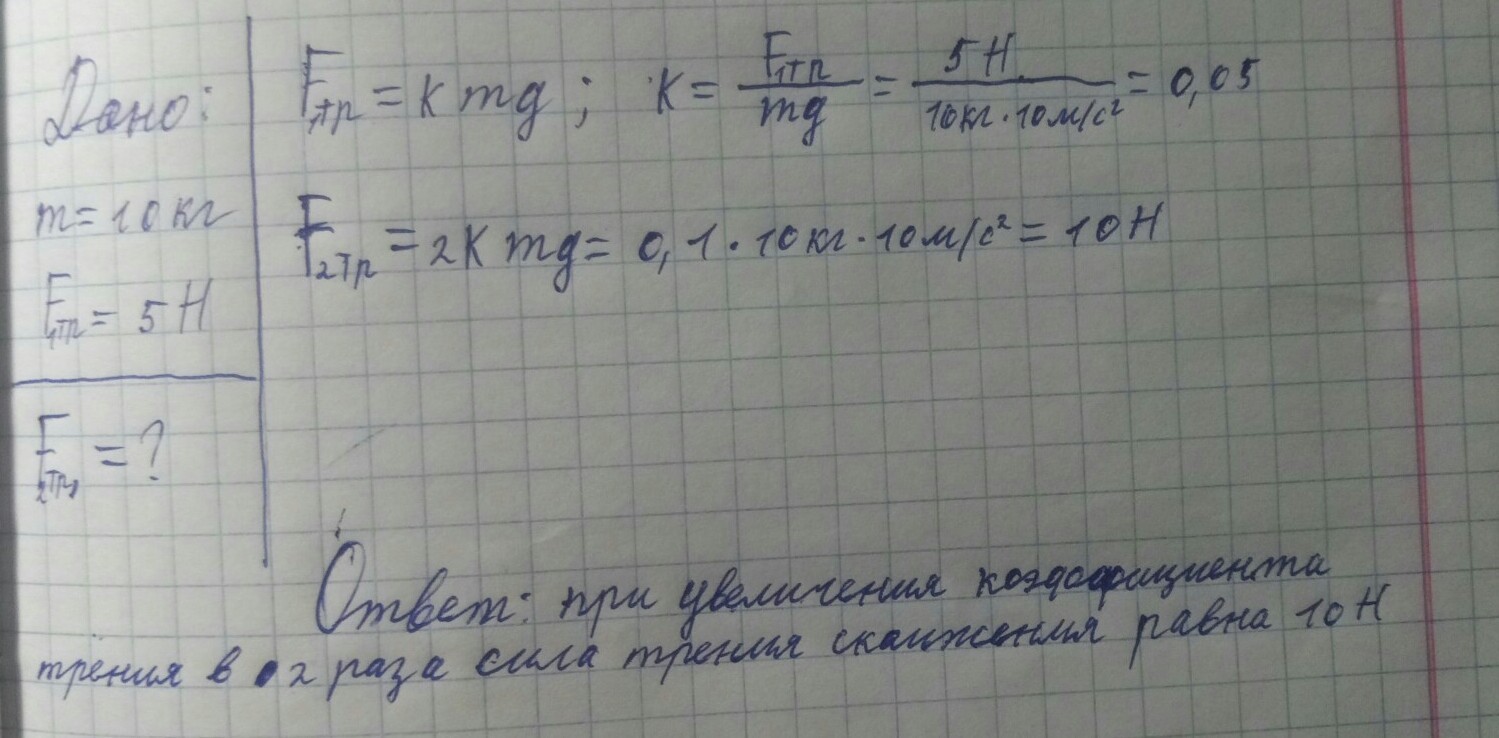 Дано:
m = 10 кг
F₁тр = 5 Н
F₂тр = ?
F₁тр = k mg ; k = F₁тр / mg = 5 Н / 10 кг · 10 м/с² = 0,05
F₂тр = 2k mg = 0,1 · 10 кг · 10 м/с² = 10 Н
Ответ: при увеличения коэффициента
трения в 2 раза сила трения скажения равна 10 Н